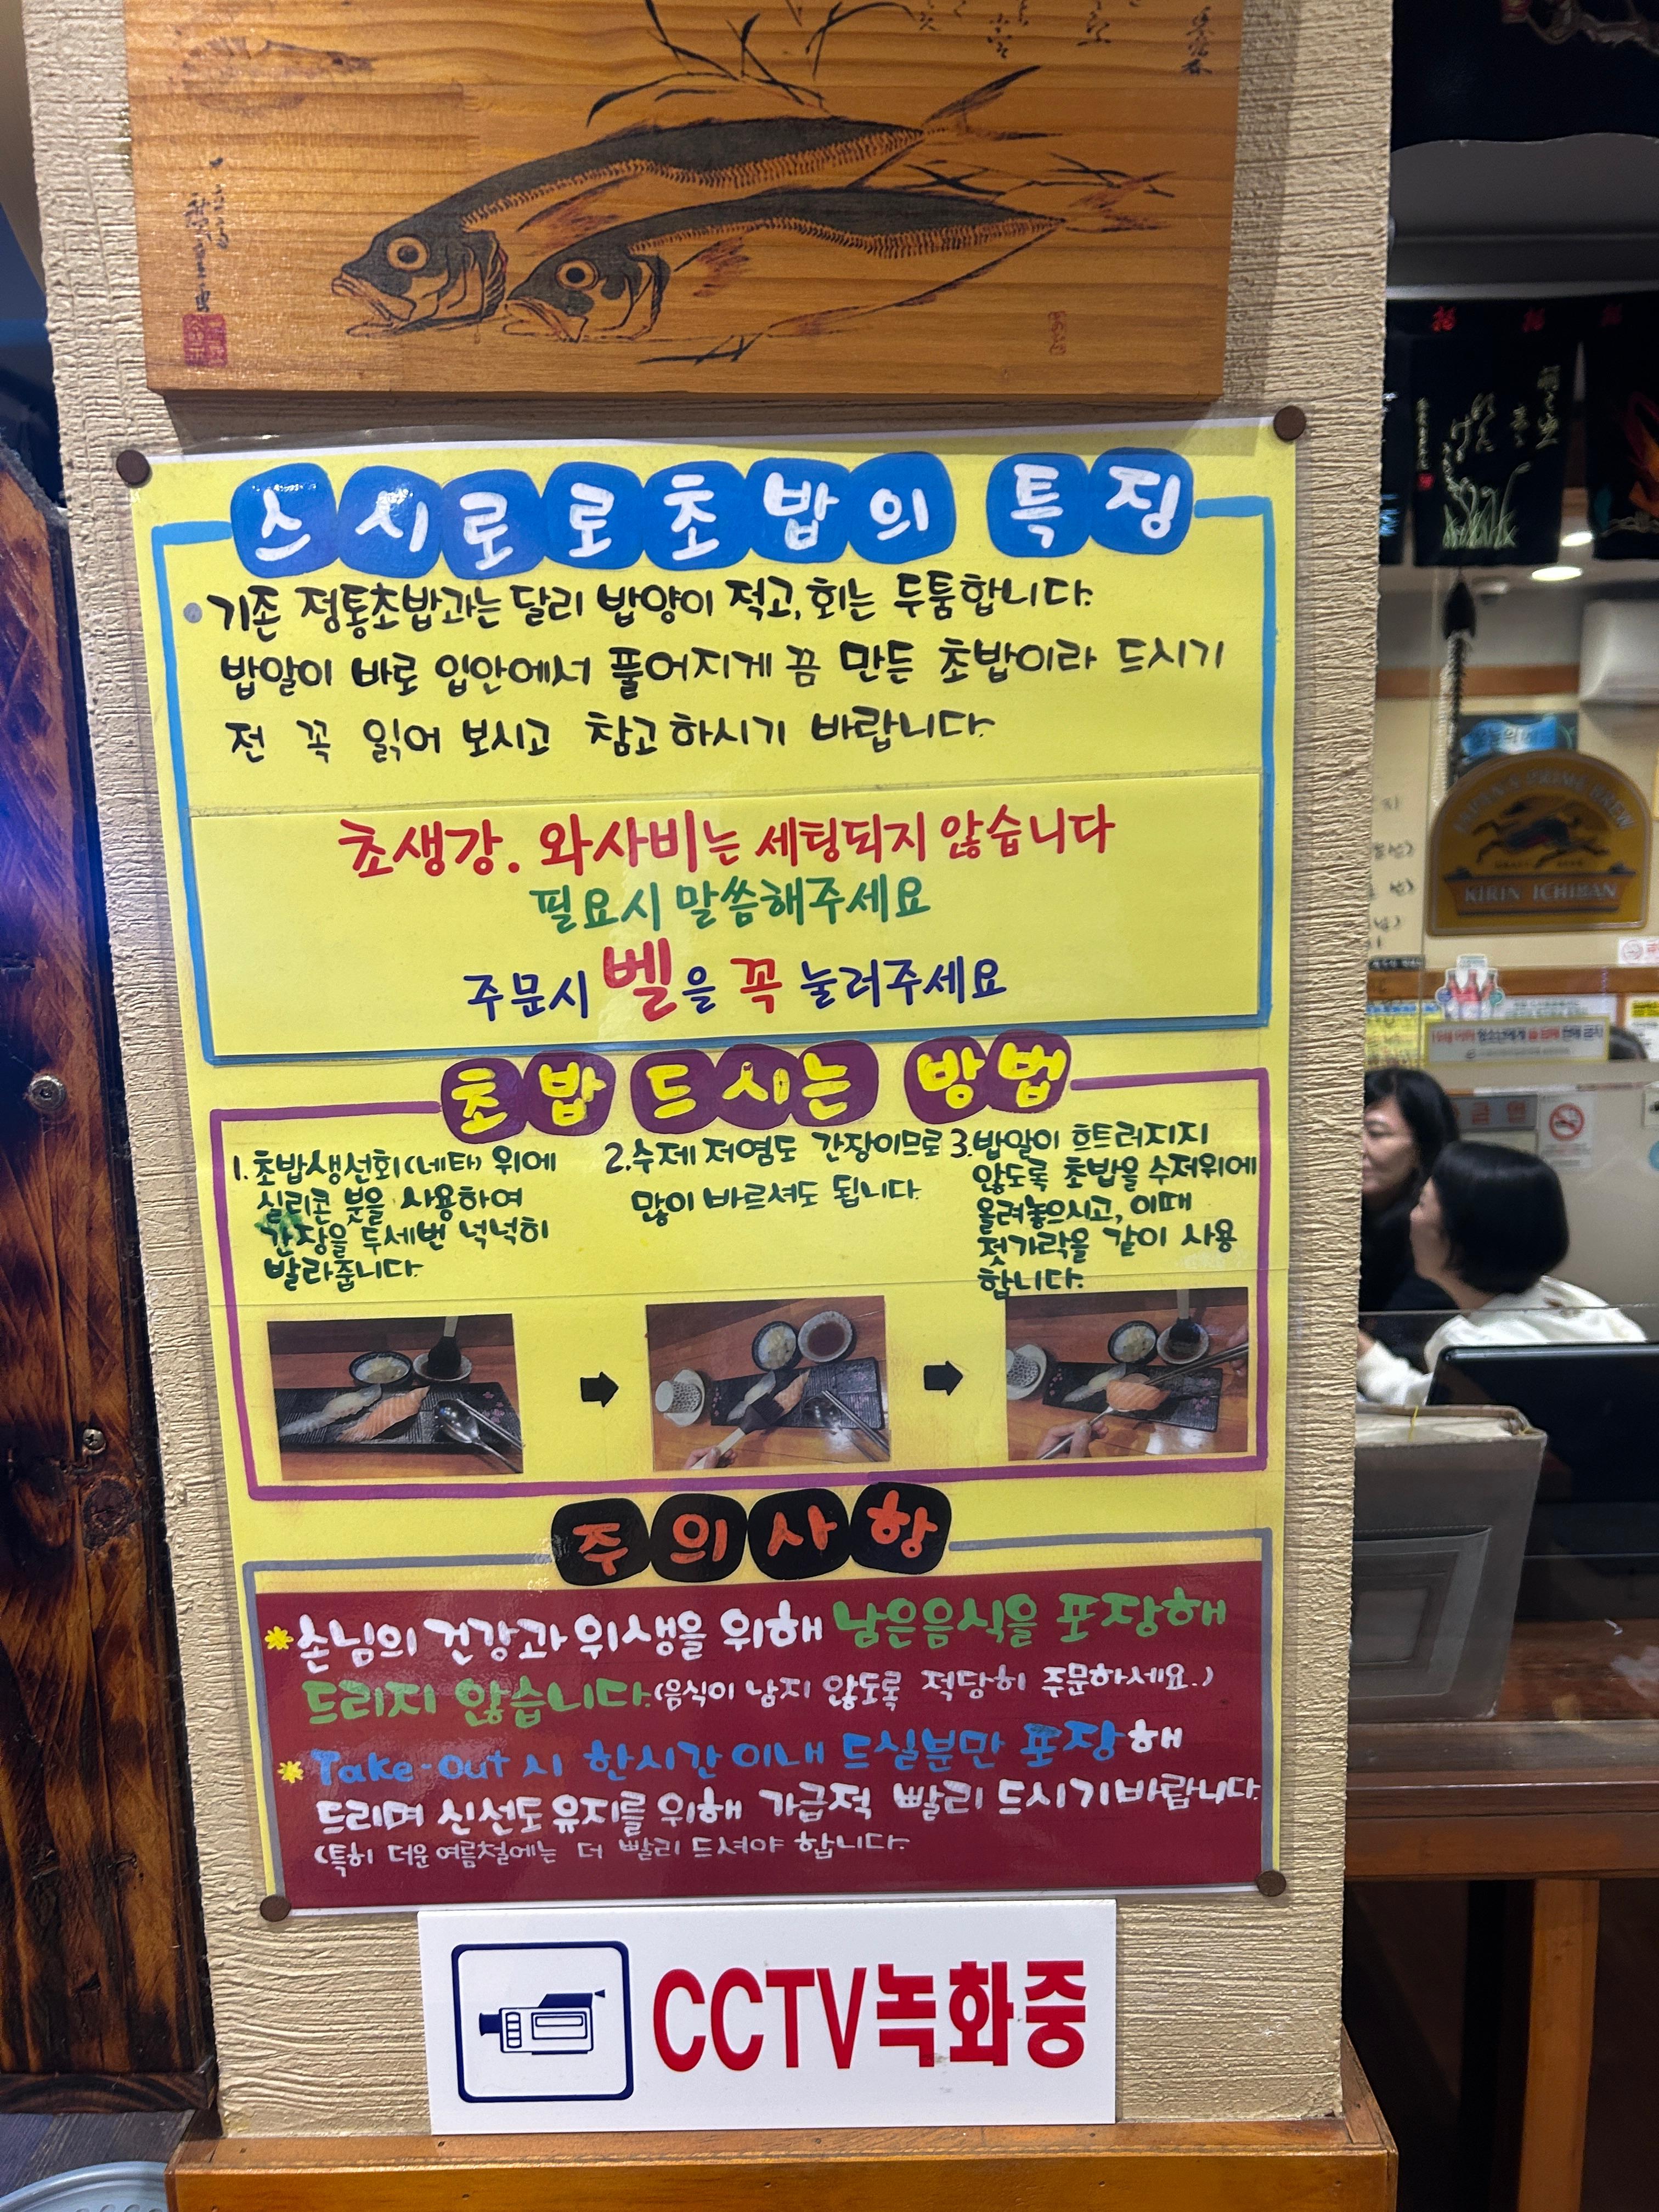 스시로로초밥의 특징
기존 정통초밥과는 달리 밥양이 적고, 회는 두툼합니다.
밥알이 바로 입안에서 풀어지게끔 만든 초밥이라 드시기
전 꼭 읽어 보시고 참고하시기 바랍니다.
초생강. 와사비는 세팅되지 않습니다
필요시 말씀해주세요
주문시 벨을 꼭 눌러주세요
초밥 드시는 방법
1. 초밥생선회(네타) 위에
실리콘 붓을 사용하여
간장을 두세번 넉넉히
발라줍니다.
2. 수제 저염도 간장이므로
많이 바르셔도 됩니다.
3. 밥알이 흐트러지지
않도록 초밥을 수저위에
올려놓으시고, 이때
젓가락을 같이 사용
합니다.
주의사항
손님의 건강과 위생을 위해 남은음식을 포장해
드리지 않습니다. (음식이 남지 않도록 적당히 주문하세요.)
Take-Out 시 한시간 이내 드실분만 포장해
드리며 신선도 유지를 위해 가급적 빨리 드시기바랍니다.
(특히 더운 여름철에는 더 빨리 드셔야 합니다.
CCTV녹화중
KIRIN ICHIBAN